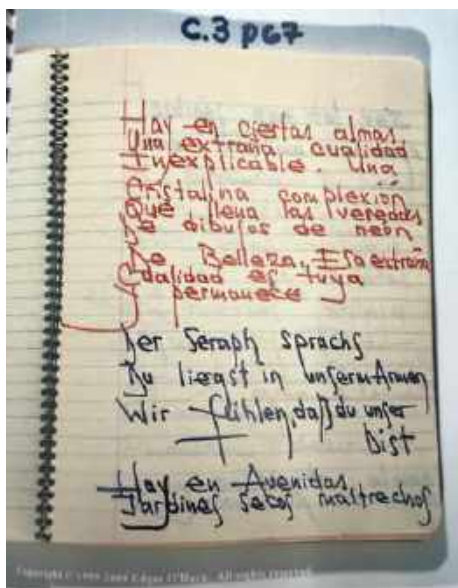 C.3 p67
Hay en ciertas almas
Una extraña cualidad
Inexplicable. Una
Cristalina complexión
Que llena las veredas
De dibujos de neón
De Belleza. Esa extraña
Cualidad es tuya
y permanece
Der Seraph sprachs
Du liegst in unserm Armen
Wir fühlen, daß du unser
bist
Hay en Avenidas
Jardines setos maltrechos
Copyright © 1999 2009 Edgar O'Hara. All rights reserved.